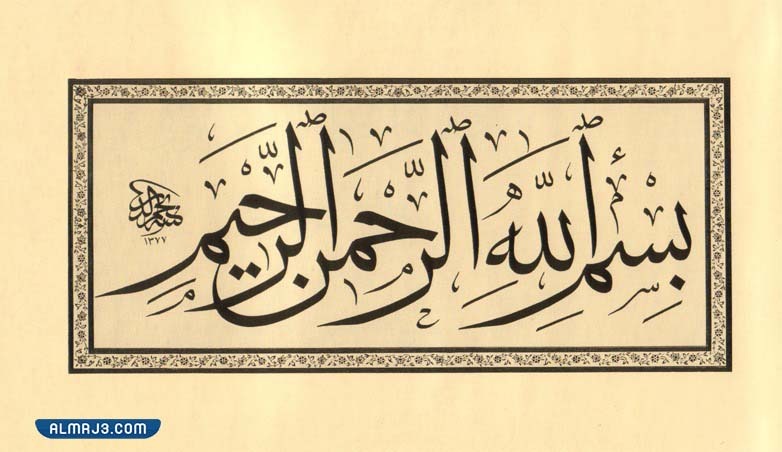 بِسْمِ ٱللَّهِ ٱلرَّحْمَنِ ٱلرَّحِيمِ
١٣٧٧
ALMAJ3.COM